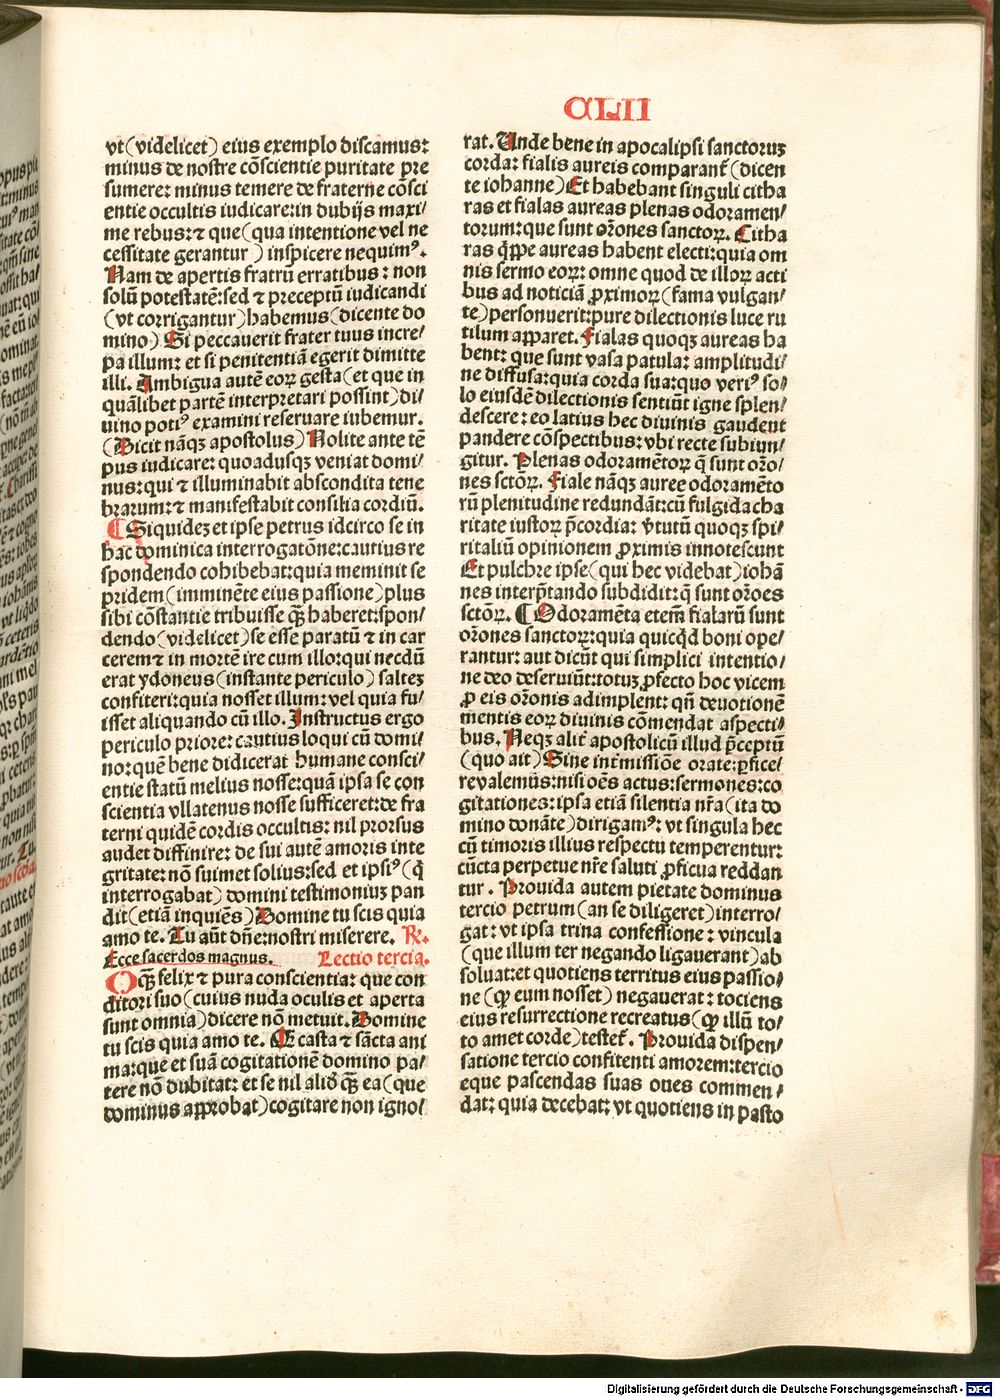 CLII
vt(videlicet) eius exemplo discamus:
minus de nostre cõscientie puritate pre
sumere: minus temere de fraterne cõsci
entie occultis iudicare:in dubijs maxi/
me rebus:⁊ que(qua intentione vel ne
cessitate gerantur ) inspicere nequimꝰ.
Nam de apertis fratrũ erratibus : non
solũ potestatẽ:sed ⁊ preceptũ iudicandi
(vt corrigantur)habemus(dicente do
mino.) Si peccauerit frater tuus incre/
pa illum: et si penitentiã egerit dimitte
illi. Ambigua autẽ eoꝝ gesta(et que in
quãlibet partẽ interpretari possint)di/
uino potiꝰ examini reseruare iubemur.
(Dicit nãqꝫ apostolus) Nolite ante tẽ
pus iudicare: quoadusqꝫ veniat domi/
nus: qui ⁊ illuminabit abscondita tene
brarum:⁊ manifestabit consilia cordiũ.
¶ Siquideꝫ et ipse petrus idcirco se in
hac dominica interrogatõne:cautius re
spondendo cohibebat:quia meminit se
pridem(imminẽte eius passione)plus
sibi cõstantie tribuisse qꝫ̃ haberet:spon/
dendo(videlicet)se esse paratũ ⁊ in car
cerem⁊ in mortẽ ire cum illo:qui necdũ
erat ydoneus(instante periculo) salteꝫ
confiteri:quia nosset illum: vel quia fu/
isset aliquando cũ illo. Instructus ergo
periculo priore: cautius loqui cũ domi/
no:quẽ bene didicerat humane consci/
entie statũ melius nosse:quã ipsa se con
scientia vllatenus nosse sufficeret:de fra
terni quidẽ cordis occultis: nil prorsus
audet diffinire: de sui autẽ amoris inte
gritate: nõ suimet solius:sed et ipsiꝰ(q̃
interrogabat) domini testimoniuꝫ pan
dit(etiã inquiẽs)Domine tu scis quia
amo te. Tu aũt dñe:nostri miserere. R̃.
Ecce sacerdos magnus. Lectio tercia.
O qꝫ̃ felix ⁊ pura conscientia: que con
ditori suo(cuius nuda oculis et aperta
sunt omnia)dicere nõ metuit.Domine
tu scis quia amo te. O casta ⁊ sãcta ani
ma:que et suã cogitationẽ domino pa/
tere nõ dubitat: et se nil aliđ qꝫ̃ ea(que
dominus aꝓrobat)cogitare non igno/
rat. Unde bene in apocalipsi sanctoruꝫ
corda: fialis aureis comparant̃ (dicen
te iohanne)Et habebant singuli citha
ras et fialas aureas plenas odoramen/
torum:que sunt or̃ones sanctoꝝ. Citha
ras q̃ppe aureas habent electi:quia om
nis sermo eoꝝ: omne quod de illoꝝ acti
bus ad noticiã ꝓximoꝝ(fama vulgan/
te)personuerit:pure dilectionis luce ru
tilum aꝑparet. Fialas quoqꝫ aureas ha
bent: que sunt vasa patula: amplitudi/
ne diffusa:quia corda sua:quo veriꝰ so/
lo eiusdẽ dilectionis sentiũt igne splen/
descere: eo latius hec diuinis gaudent
pandere cõspectibus: vbi recte subiun/
gitur. Plenas odoramẽtoꝝ q̃ sunt or̃o/
nes sctõꝝ. Fiale nãqꝫ auree odoramẽto
rũ plenitudine redundãt:cũ fulgida cha
ritate iustoꝝ p̃cordia: v̾tutũ quoqꝫ spi/
ritaliũ opinionem ꝓximis innotescunt
Et pulchre ipse(qui hec videbat)iohã
nes interp̃tando subdidit:q̃ sunt or̃oes
sctõꝝ. ¶ Odoramẽta etem̃ fialarũ sunt
or̃ones sanctoꝝ:quia quicq̃d boni ope/
rantur: aut dicũt qui simplici intentio/
ne deo deseruiũt:totuꝫ ꝓfecto hoc vicem
ꝓ eis or̃onis adimplent: qñ deuotionẽ
mentis eoꝝ diuinis cõmendat aspecti/
bus. Neqꝫ alit̃ apostolicũ illud p̃ceptũ
(quo ait)Sine int̃missiõe orate:ꝑfice/
re valemus:nisi oẽs actus:sermones:co
gitationes:ipsa etiã silentia nr̃a(ita do
mino donãte)dirigamꝰ: vt singula hec
cũ timoris illius respectu temperentur:
cũcta perpetue nr̃e saluti ꝓficua reddan
tur . Prouida autem pietate dominus
tercio petrum(an se diligeret)interro/
gat: vt ipsa trina confessione : vincula
(que illum ter negando ligauerant)ab
soluat:et quotiens territus eius passio/
ne(qꝫ eum nosset) negauerat: tociens
eius resurrectione recreatus(qꝫ illũ to/
to amet corde)testet̃. Prouida dispen/
satione tercio confitenti amorem:tercio
eque pascendas suas oues commen/
dat: quia decebat: vt quotiens in pasto
Digitalisierung gefördert durch die Deutsche Forschungsgemeinschaft - DFG